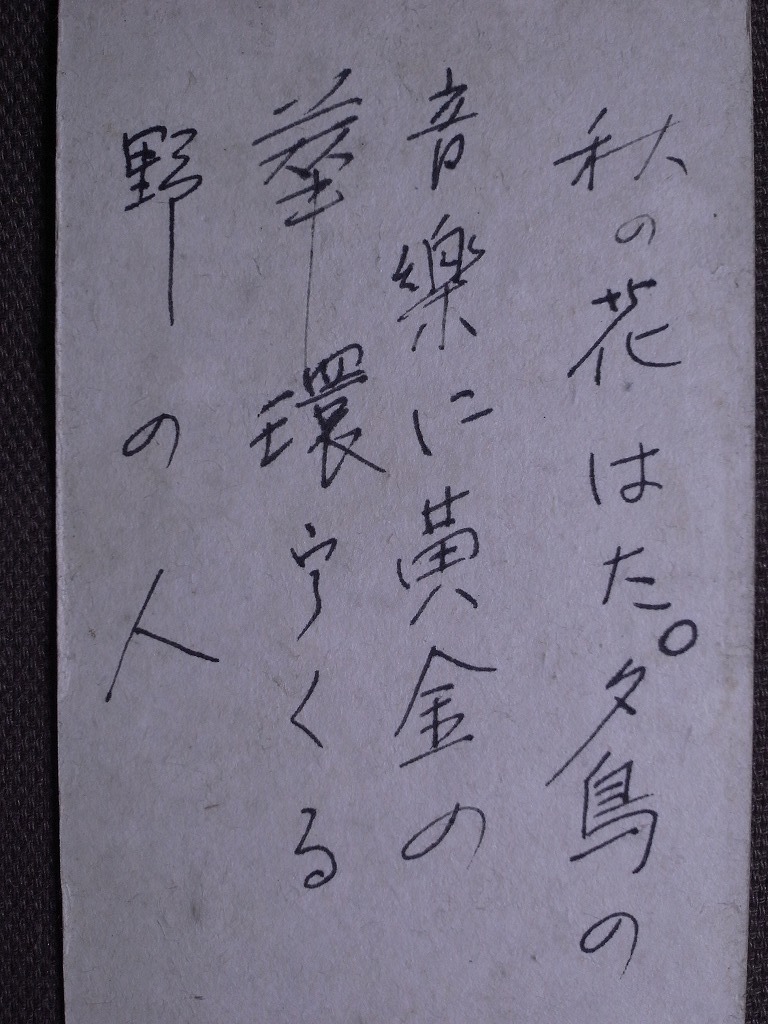 秋の花はた。夕鳥の
音樂に黄金の
華環つくる
野の人